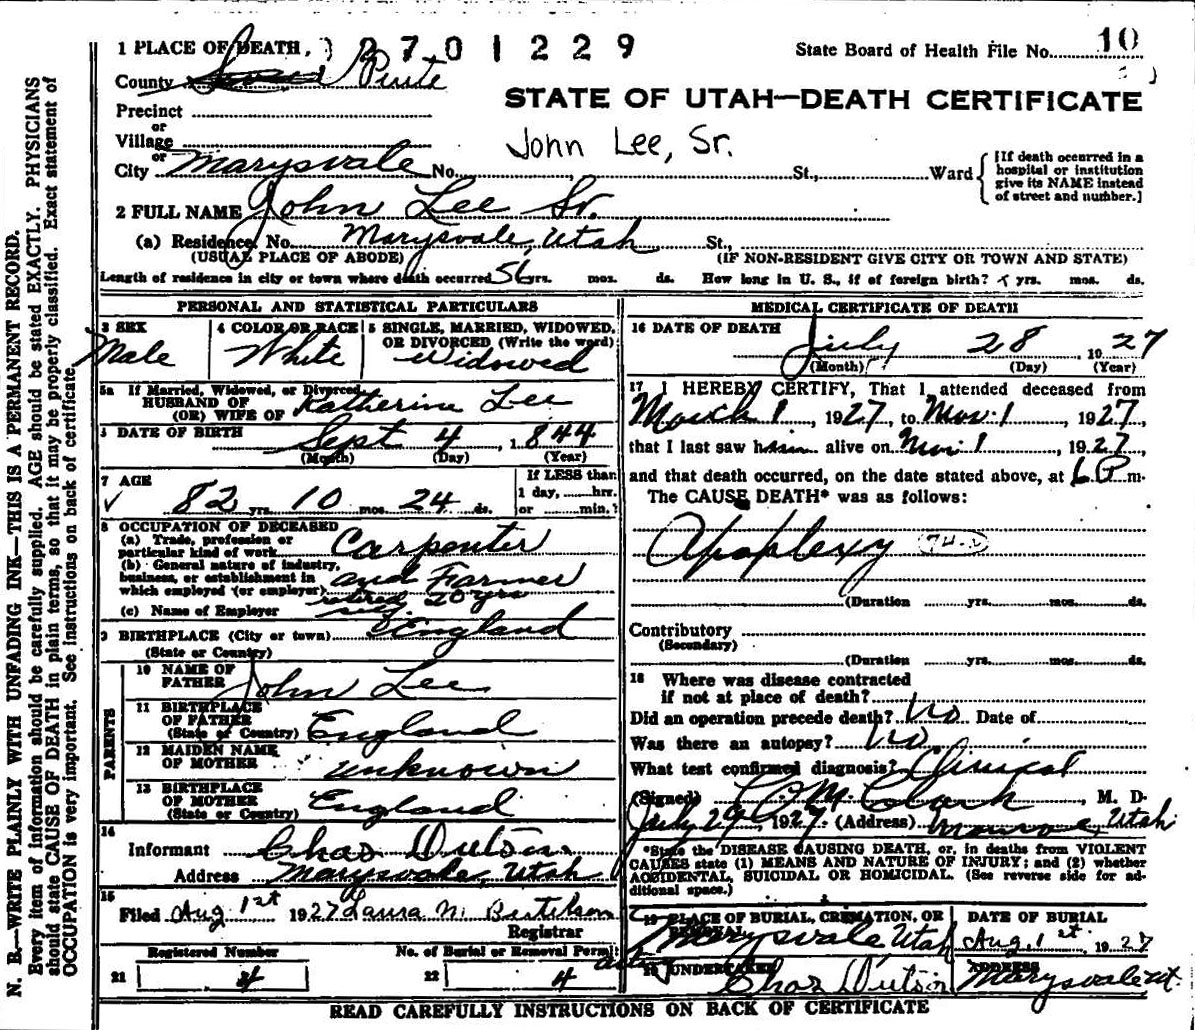 1 PLACE OF DEATH, 2701229 State Board of Health File No. 10
County Piute
STATE OF UTAH—DEATH CERTIFICATE
Precinct
or
Village
John Lee, Sr.
or
City Marysvale No. , St., Ward {[If death occurred in a hospital or institution give its NAME instead of street and number.]
2 FULL NAME John Lee Sr.
(a) Residence. No. Marysvale, Utah St.,
(USUAL PLACE OF ABODE) (IF NON-RESIDENT GIVE CITY OR TOWN AND STATE)
Length of residence in city or town where death occurred 56 yrs. mos. ds. How long in U. S., if of foreign birth? yrs. mos. ds.
PERSONAL AND STATISTICAL PARTICULARS
3 SEX 4 COLOR OR RACE 5 SINGLE, MARRIED, WIDOWED,
OR DIVORCED (Write the word)
Male White Widowed
5a If Married, Widowed, or Divorced
HUSBAND OF
(OR) WIFE OF Katherine Lee
DATE OF BIRTH Sept 4, 1844
(Month) (Day) (Year)
7 AGE If LESS than
1 day, hrs.
82 yrs. 10 mos. 24 ds. or min.?
8 OCCUPATION OF DECEASED
(a) Trade, profession or
particular kind of work Carpenter
(b) General nature of industry,
business, or establishment in
which employed (or employer) and Farmer
retired 20 yrs
(c) Name of Employer
9 BIRTHPLACE (City or town) England
(State or Country)
PARENTS
10 NAME OF
FATHER John Lee
11 BIRTHPLACE
OF FATHER
(State or Country) England
12 MAIDEN NAME
OF MOTHER unknown
13 BIRTHPLACE
OF MOTHER
(State or Country) England
14
Informant Chas Dutson
Address Marysvale, Utah
15
Filed Aug 1st 1927 Laura N. Bertelson
Registrar
Registered Number No. of Burial or Removal Permit
21 4 22 4
MEDICAL CERTIFICATE OF DEATH
16 DATE OF DEATH
July 28, 1927
(Month) (Day) (Year)
17 I HEREBY CERTIFY, That I attended deceased from
March 1, 1927, to Nov. 1, 1927,
that I last saw him alive on Nov. 1, 1927,
and that death occurred, on the date stated above, at 6 P m.
The CAUSE DEATH* was as follows:
Apoplexy
(Duration yrs. mos. ds.
Contributory
(Secondary)
(Duration yrs. mos. ds.
18 Where was disease contracted
if not at place of death?
Did an operation precede death? No Date of
Was there an autopsy? No
What test confirmed diagnosis? Clinical
(Signed) Clark, M. D.
July 29, 1927. (Address) Monroe Utah
*State the DISEASE CAUSING DEATH, or, in deaths from VIOLENT
CAUSES state (1) MEANS AND NATURE OF INJURY; and (2) whether
ACCIDENTAL, SUICIDAL OR HOMICIDAL. (See reverse side for ad-
ditional space.)
19 PLACE OF BURIAL, CREMATION, OR REMOVAL DATE OF BURIAL
Marysvale, Utah Aug. 1st, 1927
20 UNDERTAKER ADDRESS
Chas Dutson Marysvale ut.
READ CAREFULLY INSTRUCTIONS ON BACK OF CERTIFICATE
N. B.—WRITE PLAINLY WITH UNFADING INK—THIS IS A PERMANENT RECORD.
Every item of information should be carefully supplied. AGE should be stated EXACTLY. PHYSICIANS
should state CAUSE OF DEATH in plain terms, so that it may be properly classified. Exact statement of
OCCUPATION is very important. See instructions on back of certificate.